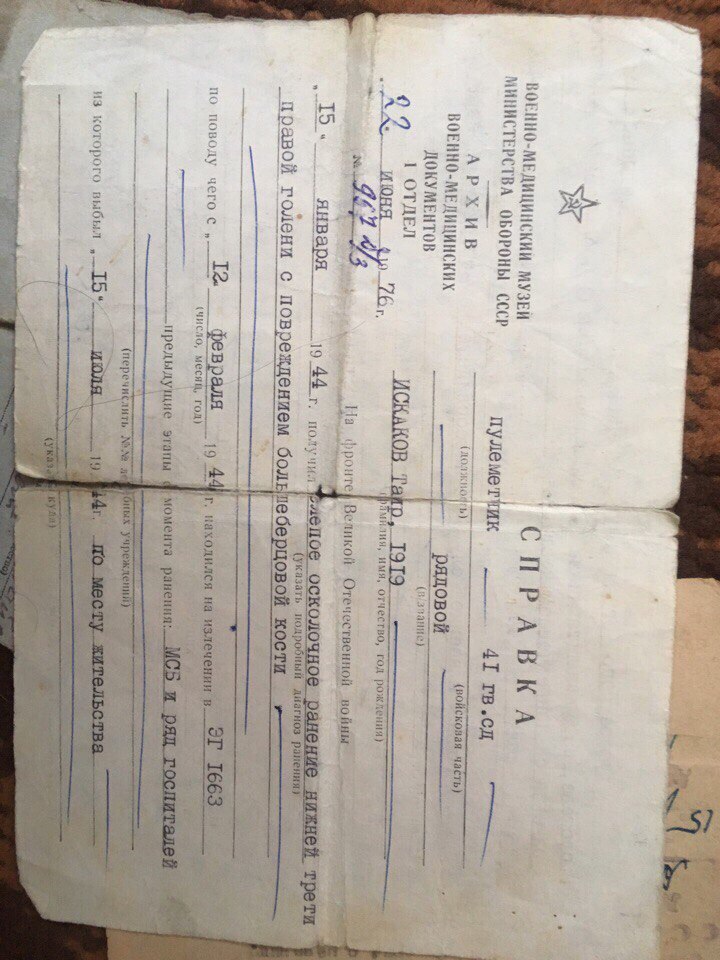 ВОЕННО-МЕДИЦИНСКИЙ МУЗЕЙ
МИНИСТЕРСТВА ОБОРОНЫ СССР
АРХИВ
ВОЕННО-МЕДИЦИНСКИХ
ДОКУМЕНТОВ
1 ОТДЕЛ
"22 июня 1976 г.
№
СПРАВКА
пулеметчик 41 гв.сд
(должность) (войсковая часть)
рядовой
(в/звание)
ИСКАКОВ Таир, 1919
(фамилия, имя, отчество, год рождения)
На фронте Великой Отечественной войны
"15" января 1944 г. получил слепое осколочное ранение нижней трети
(указать подробный диагноз ранения)
правой голени с повреждением большеберцовой кости
по поводу чего с "12 февраля 1944 г. находился на излечении в ЭГ 1663
(число, месяц, год)
предыдущие этапы с момента ранения: МСБ и ряд госпиталей
(перечислить №№ лечебных учреждений)
из которого выбыл "15" июля 1944г. по месту жительства
(указать куда)